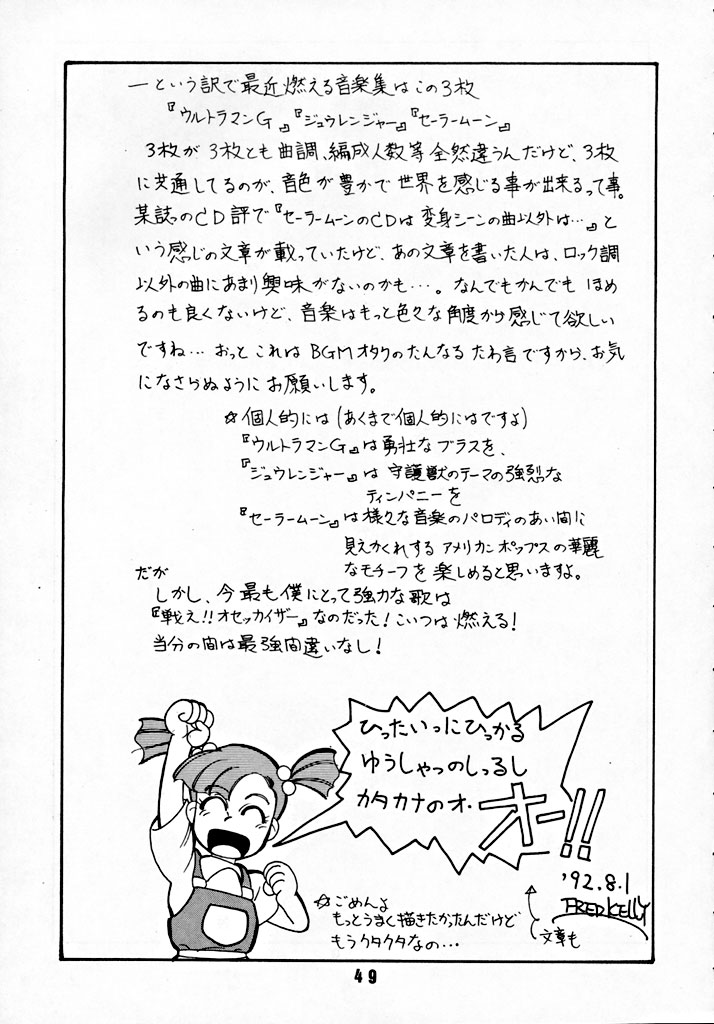 —という訳で最近燃える音楽集はこの3枚
『ウルトラマンG』『ジュウレンジャー』『セーラームーン』
3枚が3枚とも曲調、編成人数等全然違うんだけど、3枚
に共通してるのが、音色が豊かで世界を感じる事が出来るって事。
某誌のCD評で『セーラームーンのCDは変身シーンの曲以外は…』と
いう感じの文章が載っていたけど、あの文章を書いた人は、ロック調
以外の曲にあまり興味がないのかも…。なんでもかんでもほめ
るのも良くないけど、音楽はもっと色々な角度から感じて欲しい
ですね…おっとこれはBGMオタクのたんなるたわ言ですから、お気
になさらぬようにお願いします。
☆個人的には(あくまで個人的にはですよ)
『ウルトラマンG』は勇壮なブラスを、
『ジュウレンジャー』は守護獣のテーマの強烈な
ティンパニーを
『セーラームーン』は様々な音楽のパロディのあい間に
見えかくれするアメリカンポップスの華麗
なモチーフを楽しめると思いますよ。
だが
しかし、今最も僕にとって強力な歌は
『戦え!!オセッカイザー』なのだった!こいつは燃える!
当分の間は最強間違いなし!
ひったいっにひっかる
ゆうしゃっのしっるし
カタカナのオ・
オー!!
'92.8.1
FRED KELLY
☆ごめんよ
もっとうまく描きたかったんだけど
もうクタクタなの…
文章も
49